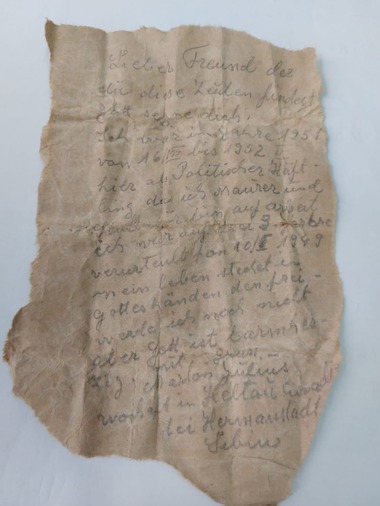 Lieber Freund der
du diese Zeilen findest
Gott segne dich.
Ich war im Jahre 1951
von 16 bis 1952 in
hier als Politischer Häft-
ling da ich Maurer und
auf arbeit
ich war auf 3 Jahre
verurteilt von 10/ 1949
mein leben stehet in
gotteshänden den frei-
werde ich noch nicht
aber Gott ist barmher-
zig. mit Gruss
Julius
wohnhaft in Heltau
bei Hermanstadt
Sibiu